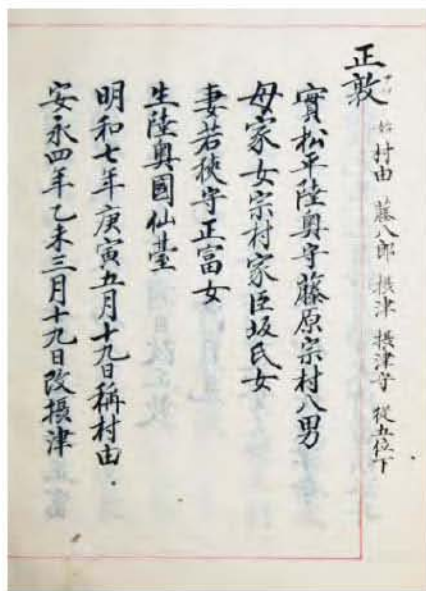 正敦
始村由 藤八郎 摂津 摂津守 從五位下
實松平陸奥守藤原宗村八男
母家女宗村家臣坂氏女
妻若狭守正富女
生陸奥國仙臺
明和七年庚寅五月十九日稱村由
安永四年乙未三月十九日改摂津